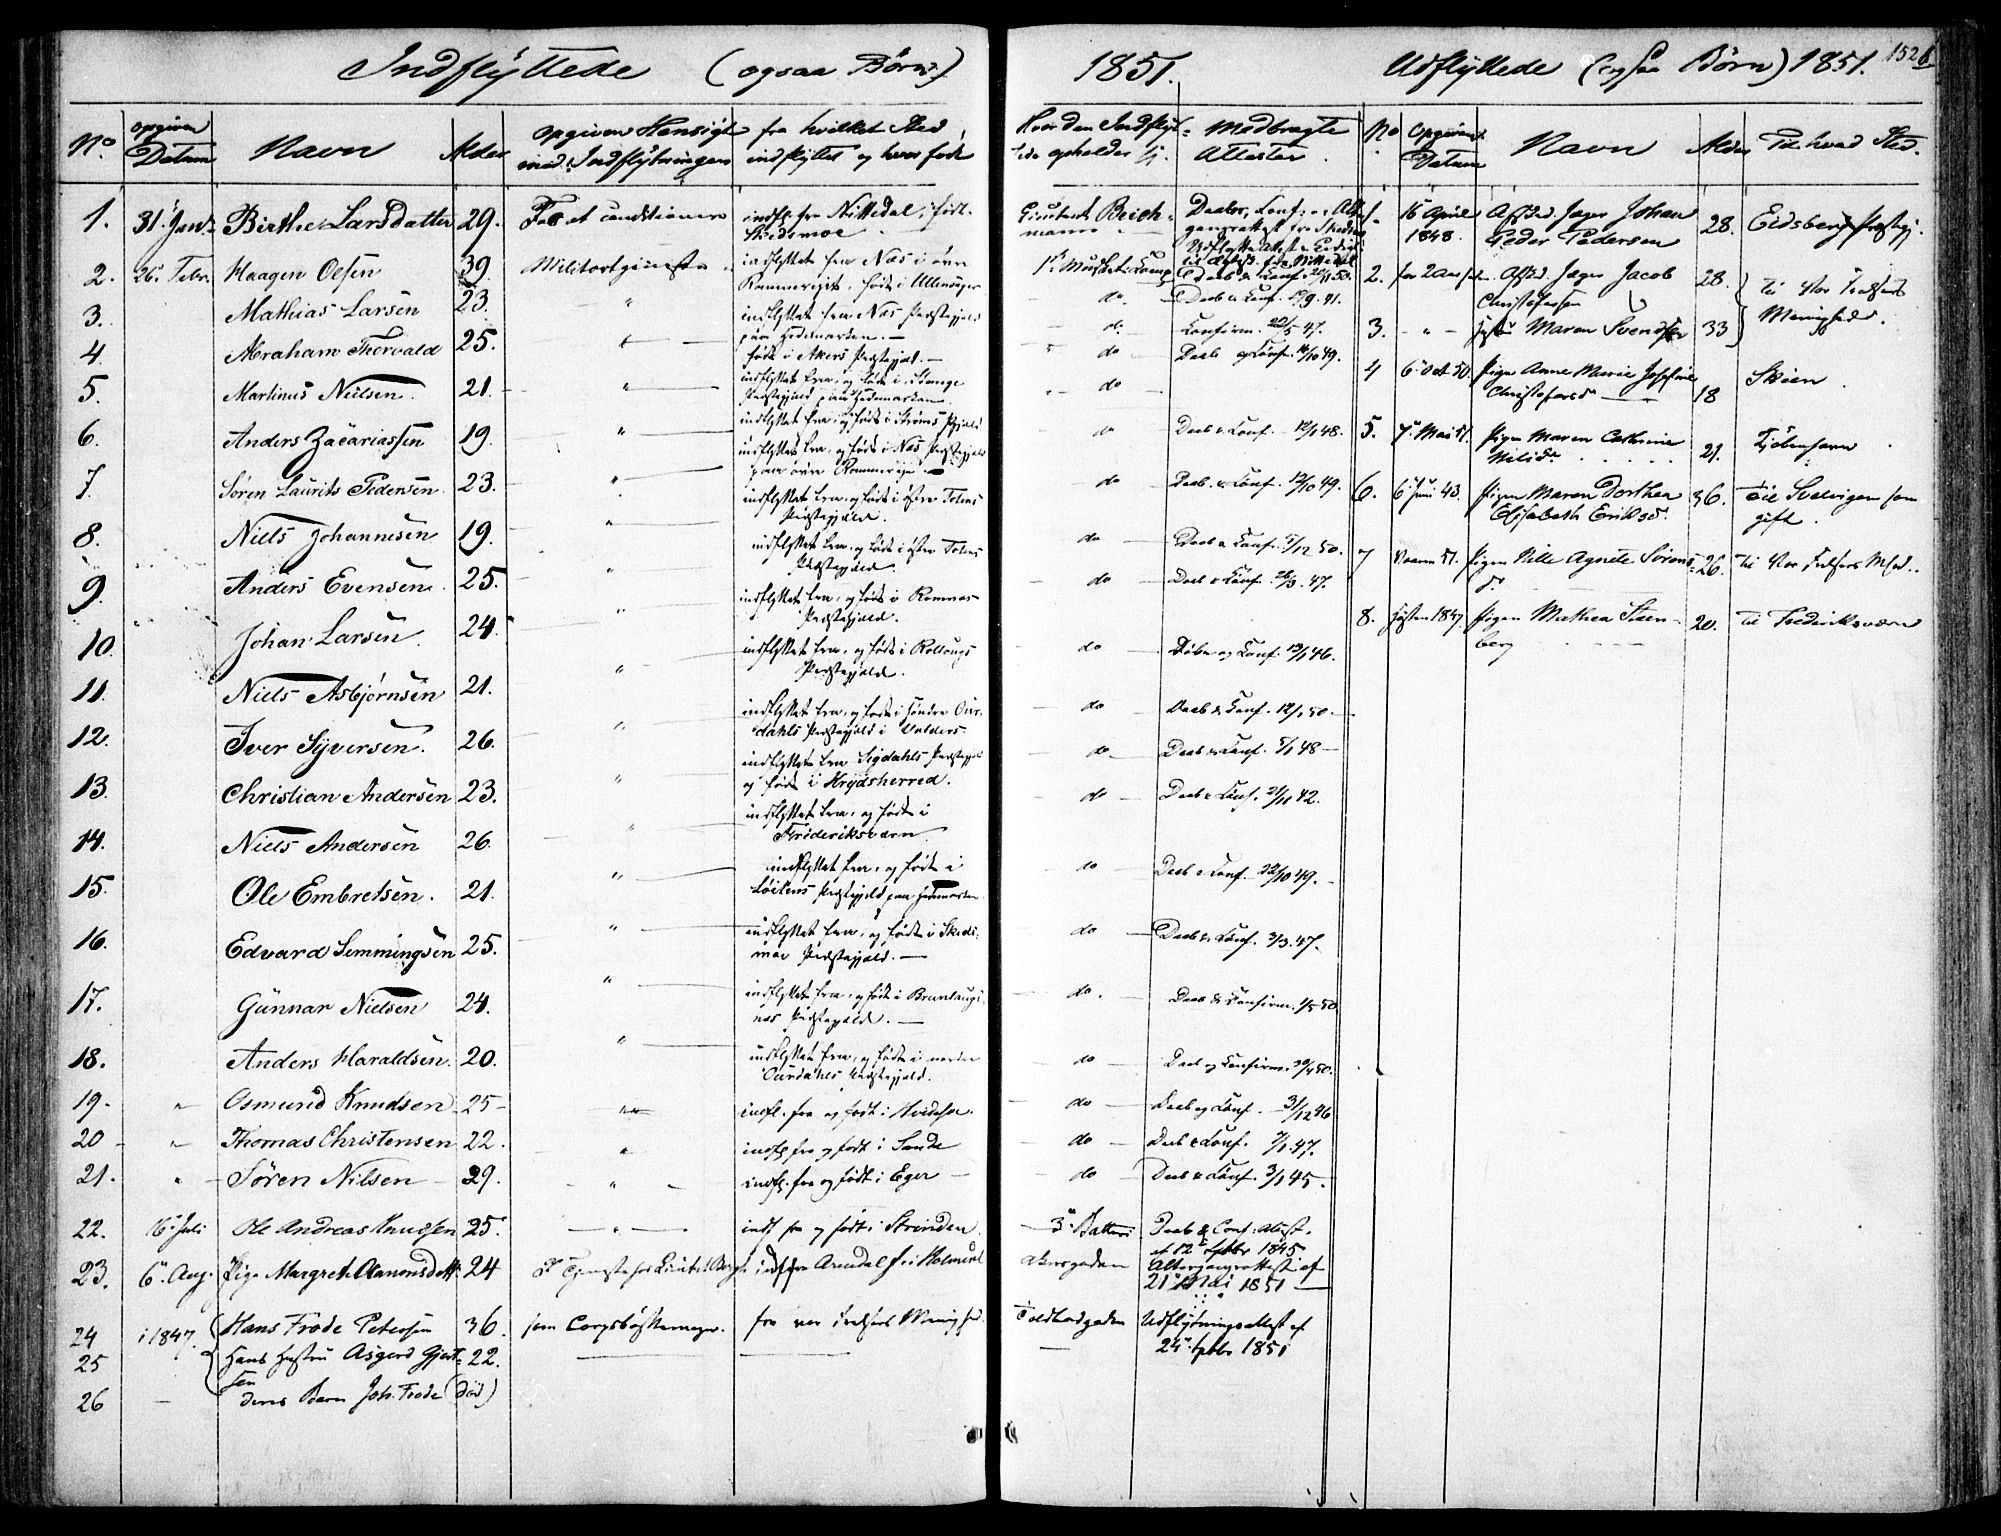 Indflyttede (ogsaa Børn)
1851.
Udflyttede (ogsaa Børn) 1851.
152
No. opgiven Datum Navn Alder opgiven Hensigt med Indflytningen fra hvilket Sted indflyttet og hvor født
1. 31 Jan. Birthe Larsdatter 29. indfl. fra Nittedal, født Skedsmoe
2. 26 Febr. Haagen Olsen 39 Militortjeneste indflyttet fra Næs i øvre Rommerige, født i Ullensager
3. Mathias Larsen 23. " indflyttet fra Næs Præstegjeld paa Hedemarken.
4. Abraham Thorvald 25. " født i Akers Præstegjæld.
5. Martinus Nielsen. 21 " indflyttet fra, og født i Stange Præstegjeld paa Hedemarken.
6. Anders Zacariassen 19. " indflyttet fra, og født i Strøms Pgjeld
7. Søren Laurits Pedersen 23. " indflyttet fra, og født i Næs Præstegjeld paa øvre Rommerige.
8. Niels Johannesen 19. " indflyttet fra, og født i østre Totens Præstegjæld.
9. Anders Evensen 25. " indflyttet fra, og født i østre Totens Præstegjæld.
10. Johan Larsen 24. " indflyttet fra, og født i Præstegjæld.
11. Niels Asbjørnsen 21. " indflyttet fra, og født i Rollaugs Præstegjæld.
12. Iver Syversen. 26. " indflyttet fra, og født i søndre Ourdahls Præstegjæld i Valders
13. Christian Andersen 23. " indflyttet fra Sigdahls Præstegjæld og født i Krydsherred.
14. Niels Andersen 26. " indflyttet fra, og født i Frideriksværn
15. Ole Embretsen. 21. " indflyttet fra, og født i Løitens Præstegjeld paa Hedemarken
16. Edvard Semmingsen 25. " indflyttet fra, og født i Skedsmoe Præstegjæld.
17. Gunnar Nielsen 24. " indflyttet fra, og født i Brunlaugnæs Præstegjæld.
18. Anders Haraldsen. 20. " indflyttet fra, og født i nordre Ourdahls Præstegjeld.
19. " Osmund Knudsen 25 " indfl. fra og født i Hvideseø.
20 " Thomas Christensen 22. " indfl. fra og født i Sande
21. " Søren Nilsen 29. " indfl. fra og født i Eger
22. 16 Juli Ole Andreas Knudsen 25. " indf fra og født i Strinden
23. 6 Aug. Pige Margreth Aanonsdatt. 24 Tjeneste hos indf fra Arendal f. i
24 i 1847. Hans Frode Petersen 36. som Corpsbøssemager. fra vor Frelsers Menighed.
25 Hans Hustru Asgerd Gjertsen 22.
26 deres Barn Joh. Frode (død)
Hvor den Indflyttede opholder sig Medbragte Attester
Daabs, Conf. Altergangsattest fra
1ste Musket. Comp. Daab & Conf.
do. Daab & Conf. 9/9. 41.
do. Confirm. 20/5 47.
do Daab og Conf. 14/10 49.
do
do Daab & Conf. 12/1 48.
do Daab & Conf. 12/10 49.
do Daab & Conf. 1/12 50.
do Daab & Conf. 26/3. 47.
do Døbe og Conf. 19/1 46.
do Daab & Conf. 12/1 50.
do Daab & Conf. 5/1 48
do Daab & Conf. 21/11 42.
do Daab & Conf. 22/10 49.
do Daab & Conf. 3/3. 47.
do. Daab & Confirm. 1/5 50
do Daab og Confirm. 30/1 50.
do Daab og Conf. 31/12 46
do Daab & Conf. 7/1. 47.
do Daab & Conf. 3/1 45.
3 Batteri Daab & Conf. Attest. af 12 Septbr 1845
Akersgaden Altergangsattest af 21 Mai 1851
Toldbodgaden Udflytningsattest af 24 Septbr 1851
No. Opgiven Datum Navn Alder Til hvad Sted.
1. 15 April 1848. Afsked. Jæger Johan Peder Pedersen 28. Eidsberg Præstegj.
2. for 2 Aar siden Afsked. Jæger Jacob Christofersen 28. Til Vor Frelsers Menighed.
3. " Hustru Maren Svendsen 33
4 6 Oct 50. Pigen Anne Marie Josefine Christofersd. 18 Skien.
5. 7 Mai 51. Pigen Maren Cathrine Nilsd. 21. Kjøbenhavn
6. 6 Juni 43. Pigen Maren Dorthea Elisabeth Eriksd. 36. til Svelvigen som gift.
7 Vaaren 51. Pigen Nille Agnete Sørensd. 26. til Vor Frelsers Mhd.
8. Høsten 1847 Pigen Mathea Steenberg 20. til Frederiksværn